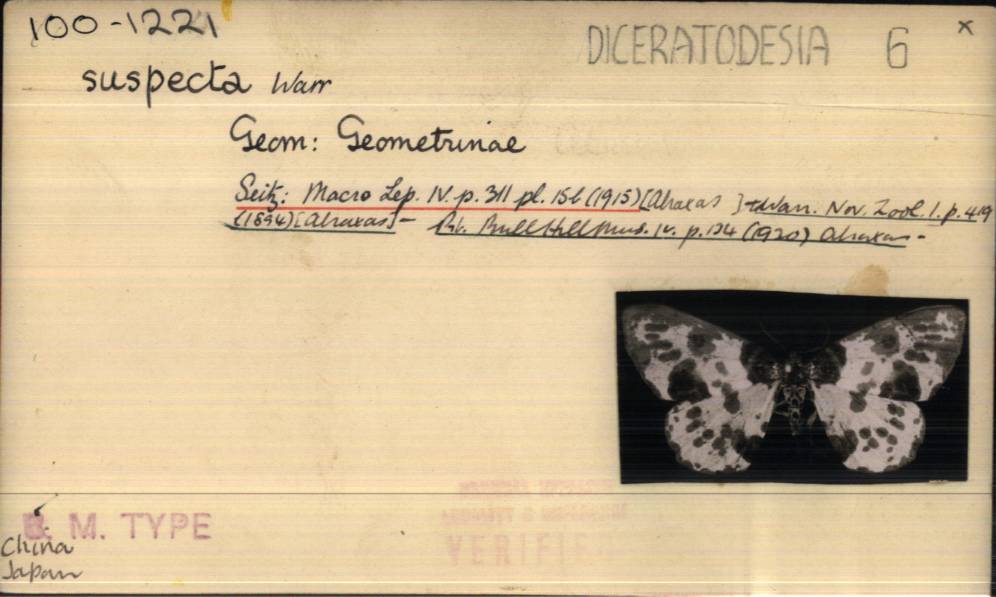 100-1221
DICERATODESIA 6 x
suspecta Warr
Geom: Geometrinae
Seitz: Macro Lep. IV. p. 311 pl. 15b (1915) [Abraxas] - Warr. Nov. Zool. 1. p. 419
(1894) [Abraxas] - Bull Hill Mus. IV. p. 124 (1920) Abraxas -
B. M. TYPE
VERIFIED
China
Japan